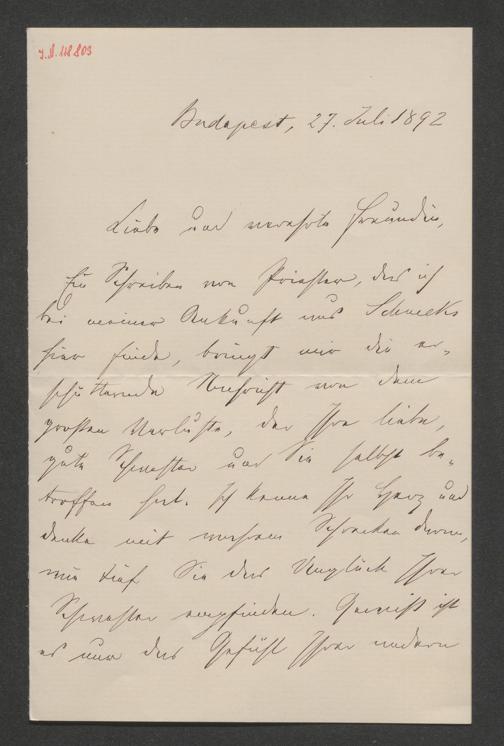 I.N. 118.803
Budapest, 27. Juli 1892
Liebe und verehrte Freundin,
Ein Schreiben von Priester, das ich
bei meiner Ankunft aus Schmecks
hier finde, bringt mir die er-
schütternde Nachricht von dem
großen Verluste, der Ihre liebe,
gute Schwester und Sie selbst be-
troffen hat. Ich kenne Ihr Herz und
denke mit wahrem Schrecken daran,
wie tief Sie das Unglück Ihrer
Schwester empfinden. Gewiß ist
es nur das Gefühl Ihrer andern